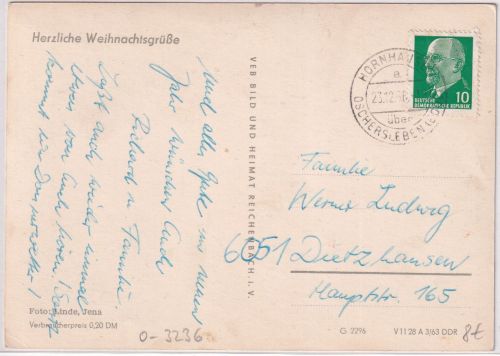 Herzliche Weihnachtsgrüße
Und alles Gute im neuen
Jahr wünschen Euch
Richard u. Familie.
Laßt auch wieder einmal
etwas von Euch hören!
kommt
Foto: Linde, Jena
Verbraucherpreis 0,20 DM
VEB BILD UND HEIMAT REICHENBACH I. V.
HORNHAU
a
23.12.
über
OSCHERSLEBEN
10
DEUTSCHE
DEMOKRATISCHE REPUBLIK
Familie
Werner Ludwig
6051 Dietzhausen
Hauptstr. 165
0-3236
G 2296
V 11 28 A 3/63 DDR
8€